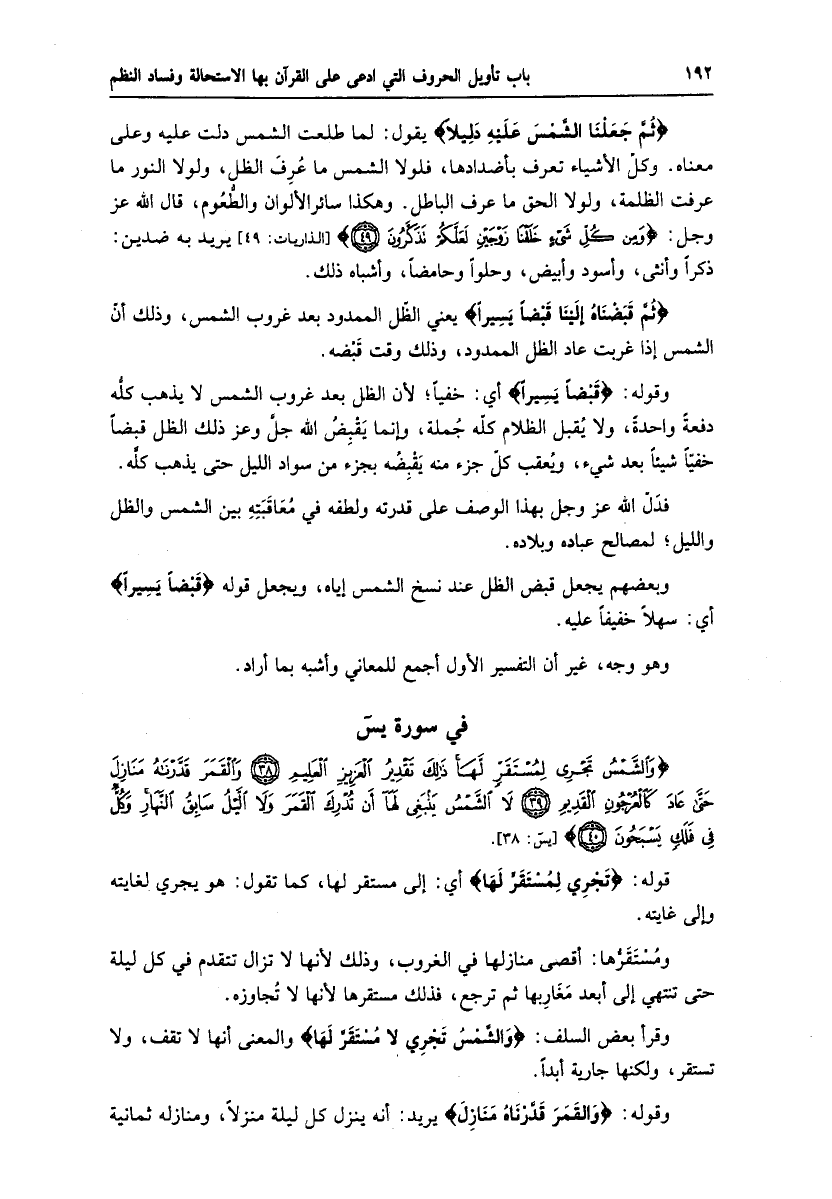 ١٩٢ باب تأويل الحروف التي ادعى على القرآن بها الاستحالة وفساد النظم
﴿ثُمَّ جَعَلْنَا الشَّمْسَ عَلَيْهِ دَلِيلاً﴾ يقول: لما طلعت الشمس دلت عليه وعلى
معناه. وكلّ الأشياء تعرف بأضدادها، فلولا الشمس ما عُرِفَ الظل، ولولا النور ما
عرفت الظلمة، ولولا الحق ما عرف الباطل. وهكذا سائر الألوان والطُّعُوم، قال الله عز
وجل: ﴿وَمِن كُلِّ شَيْءٍ خَلَقْنَا زَوْجَيْنِ لَعَلَّكُمْ تَذَكَّرُونَ ﴿٤٩﴾﴾ [الذاريات: ٤٩] يريد به ضدين:
ذكراً وأنثى، وأسود وأبيض، وحلواً وحامضاً، وأشباه ذلك.
﴿ثُمَّ قَبَضْنَاهُ إِلَيْنَا قَبْضاً يَسِيراً﴾ يعني الظّل الممدود بعد غروب الشمس، وذلك أنّ
الشمس إذا غربت عاد الظل الممدود، وذلك وقت قَبْضه.
وقوله: ﴿قَبْضاً يَسِيراً﴾ أي: خفياً؛ لأن الظل بعد غروب الشمس لا يذهب كلُّه
دفعةً واحدةً، ولا يُقبل الظلام كلّه جُملة، وإنما يَقْبِضُ الله جلَّ وعز ذلك الظل قبضاً
خفيّاً شيئاً بعد شيء، ويُعقب كلّ جزء منه يَقْبِضُه بجزء من سواد الليل حتى يذهب كلَّه.
فدَلّ الله عز وجل بهذا الوصف على قدرته ولطفه في مُعَاقَبَتِهِ بين الشمس والظل
والليل؛ لمصالح عباده وبلاده.
وبعضهم يجعل قبض الظل عند نسخ الشمس إياه، ويجعل قوله ﴿قَبْضاً يَسِيراً﴾
أي: سهلاً خفيفاً عليه.
وهو وجه، غير أن التفسير الأول أجمع للمعاني وأشبه بما أراد.
في سورة يسّ
﴿وَٱلشَّمْسُ تَجْرِى لِمُسْتَقَرٍّ لَّهَا ذَٰلِكَ تَقْدِيرُ ٱلْعَزِيزِ ٱلْعَلِيمِ ﴿٣٨﴾ وَٱلْقَمَرَ قَدَّرْنَٰهُ مَنَازِلَ
حَتَّىٰ عَادَ كَٱلْعُرْجُونِ ٱلْقَدِيمِ ﴿٣٩﴾ لَا ٱلشَّمْسُ يَنۢبَغِى لَهَآ أَن تُدْرِكَ ٱلْقَمَرَ وَلَا ٱلَّيْلُ سَابِقُ ٱلنَّهَارِ وَكُلٌّ
فِى فَلَكٍ يَسْبَحُونَ ﴿٤٠﴾﴾ [يسّ: ٣٨].
قوله: ﴿تَجْرِي لِمُسْتَقَرٍّ لَهَا﴾ أي: إلى مستقر لها، كما تقول: هو يجري لغايته
وإلى غايته.
ومُسْتَقَرُّها: أقصى منازلها في الغروب، وذلك لأنها لا تزال تتقدم في كل ليلة
حتى تنتهي إلى أبعد مَغَاربها ثم ترجع، فذلك مستقرها لأنها لا تُجاوزه.
وقرأ بعض السلف: ﴿وَالشَّمْسُ تَجْرِي لا مُسْتَقَرَّ لَهَا﴾ والمعنى أنها لا تقف، ولا
تستقر، ولكنها جارية أبداً.
وقوله: ﴿وَالقَمَرَ قَدَّرْنَاهُ مَنَازِلَ﴾ يريد: أنه ينزل كل ليلة منزلاً، ومنازله ثمانية